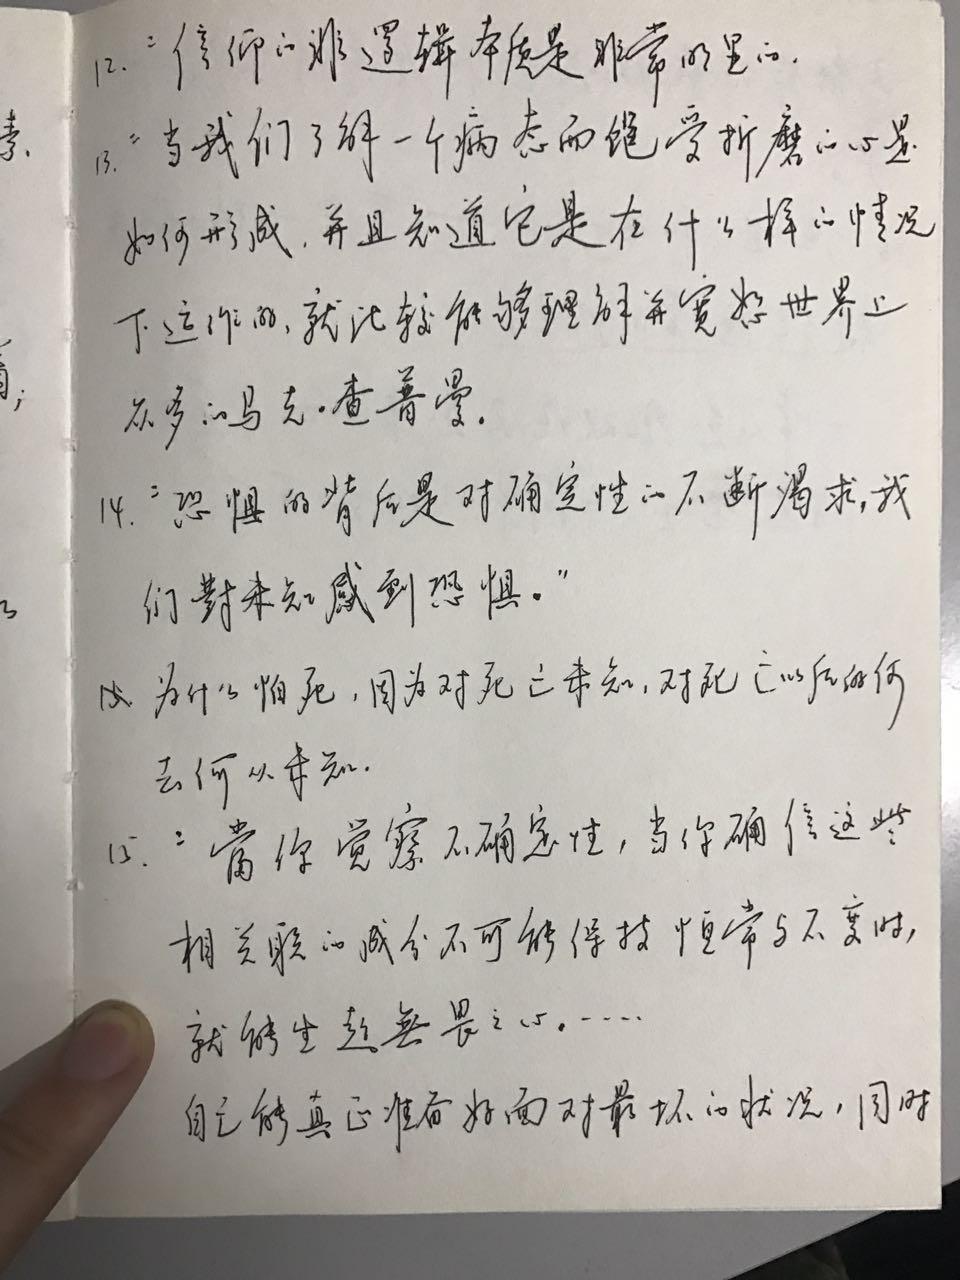 素
12.“信仰的非逻辑本质是非常明显的.
13.“当我们了解一个病态而饱受折磨的心是
如何形成,并且知道它是在什么样的情况
下运作的,就比较能够理解并宽恕世界上
众多的马克·查普曼。
14.“恐惧的背后是对确定性的不断渴求,我
们對未知感到恐惧。”
为什么怕死,因为对死亡未知,对死亡以后的何
去何从未知.
15.“當你觉察不确定性,当你确信这些
相关联的成分不可能保持恒常与不变时,
就能生起無畏之心。……
自己能真正准备好面对最坏的状况,同时